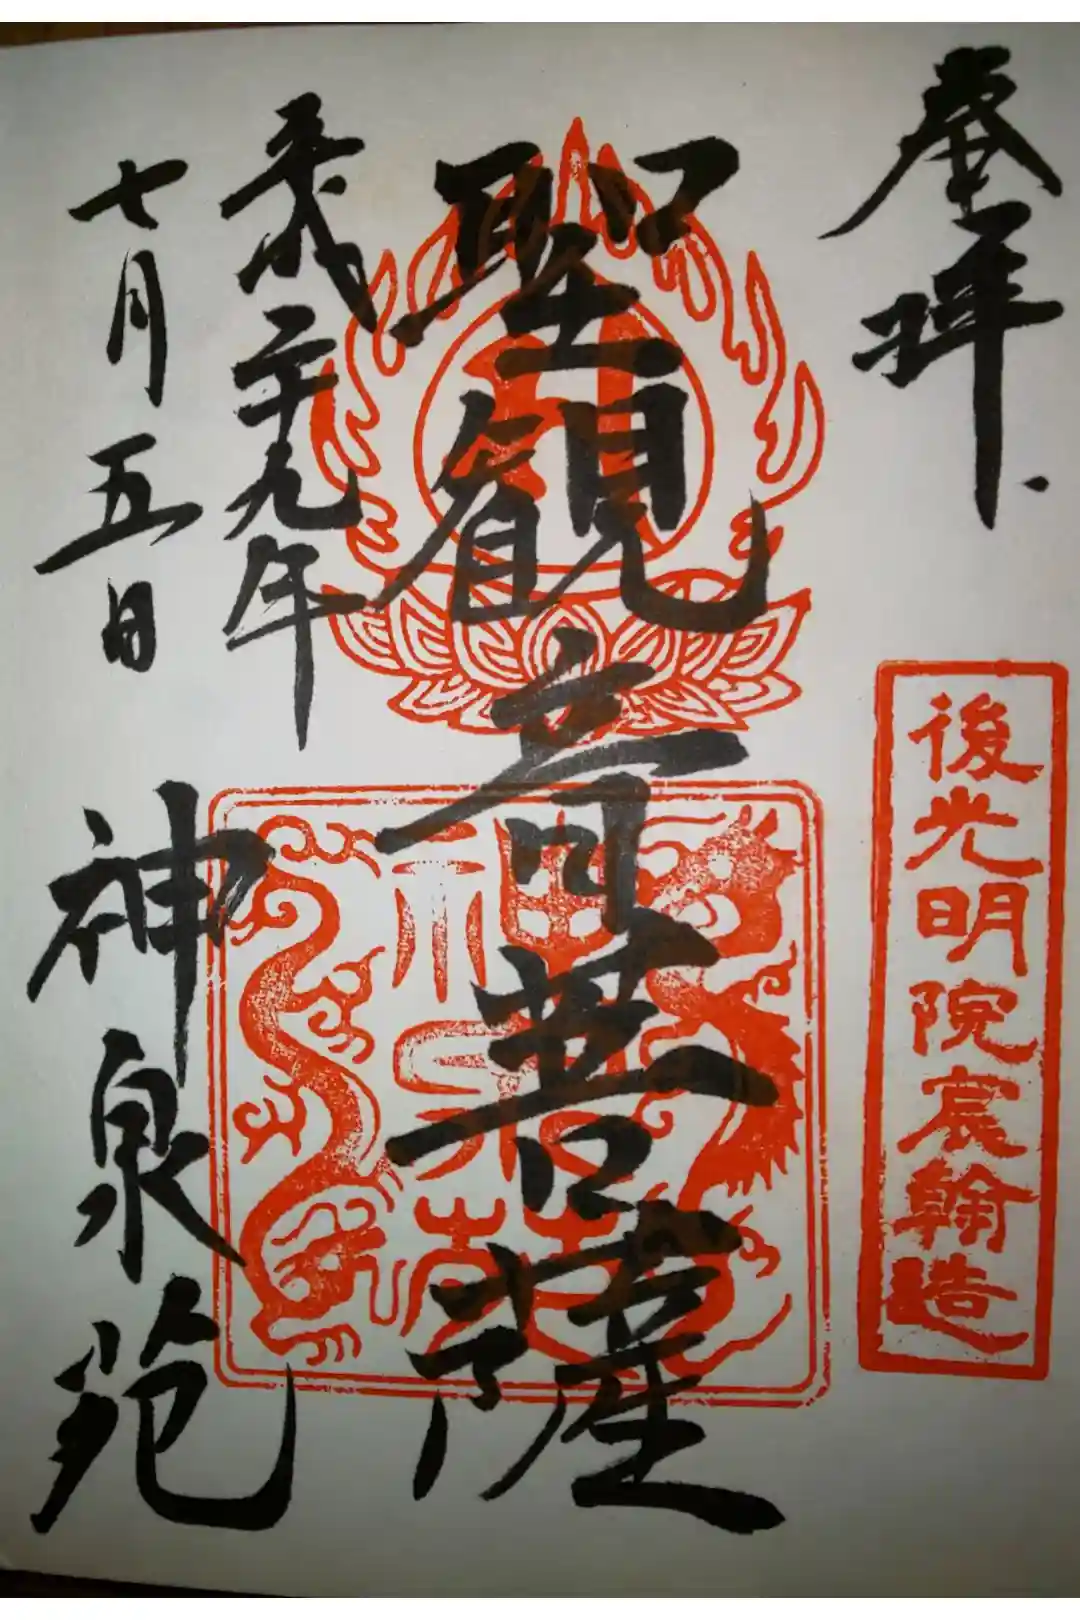 奉拝
後光明院宸翰造
聖観音菩薩
平成二十九年
七月五日
神泉苑
神泉苑